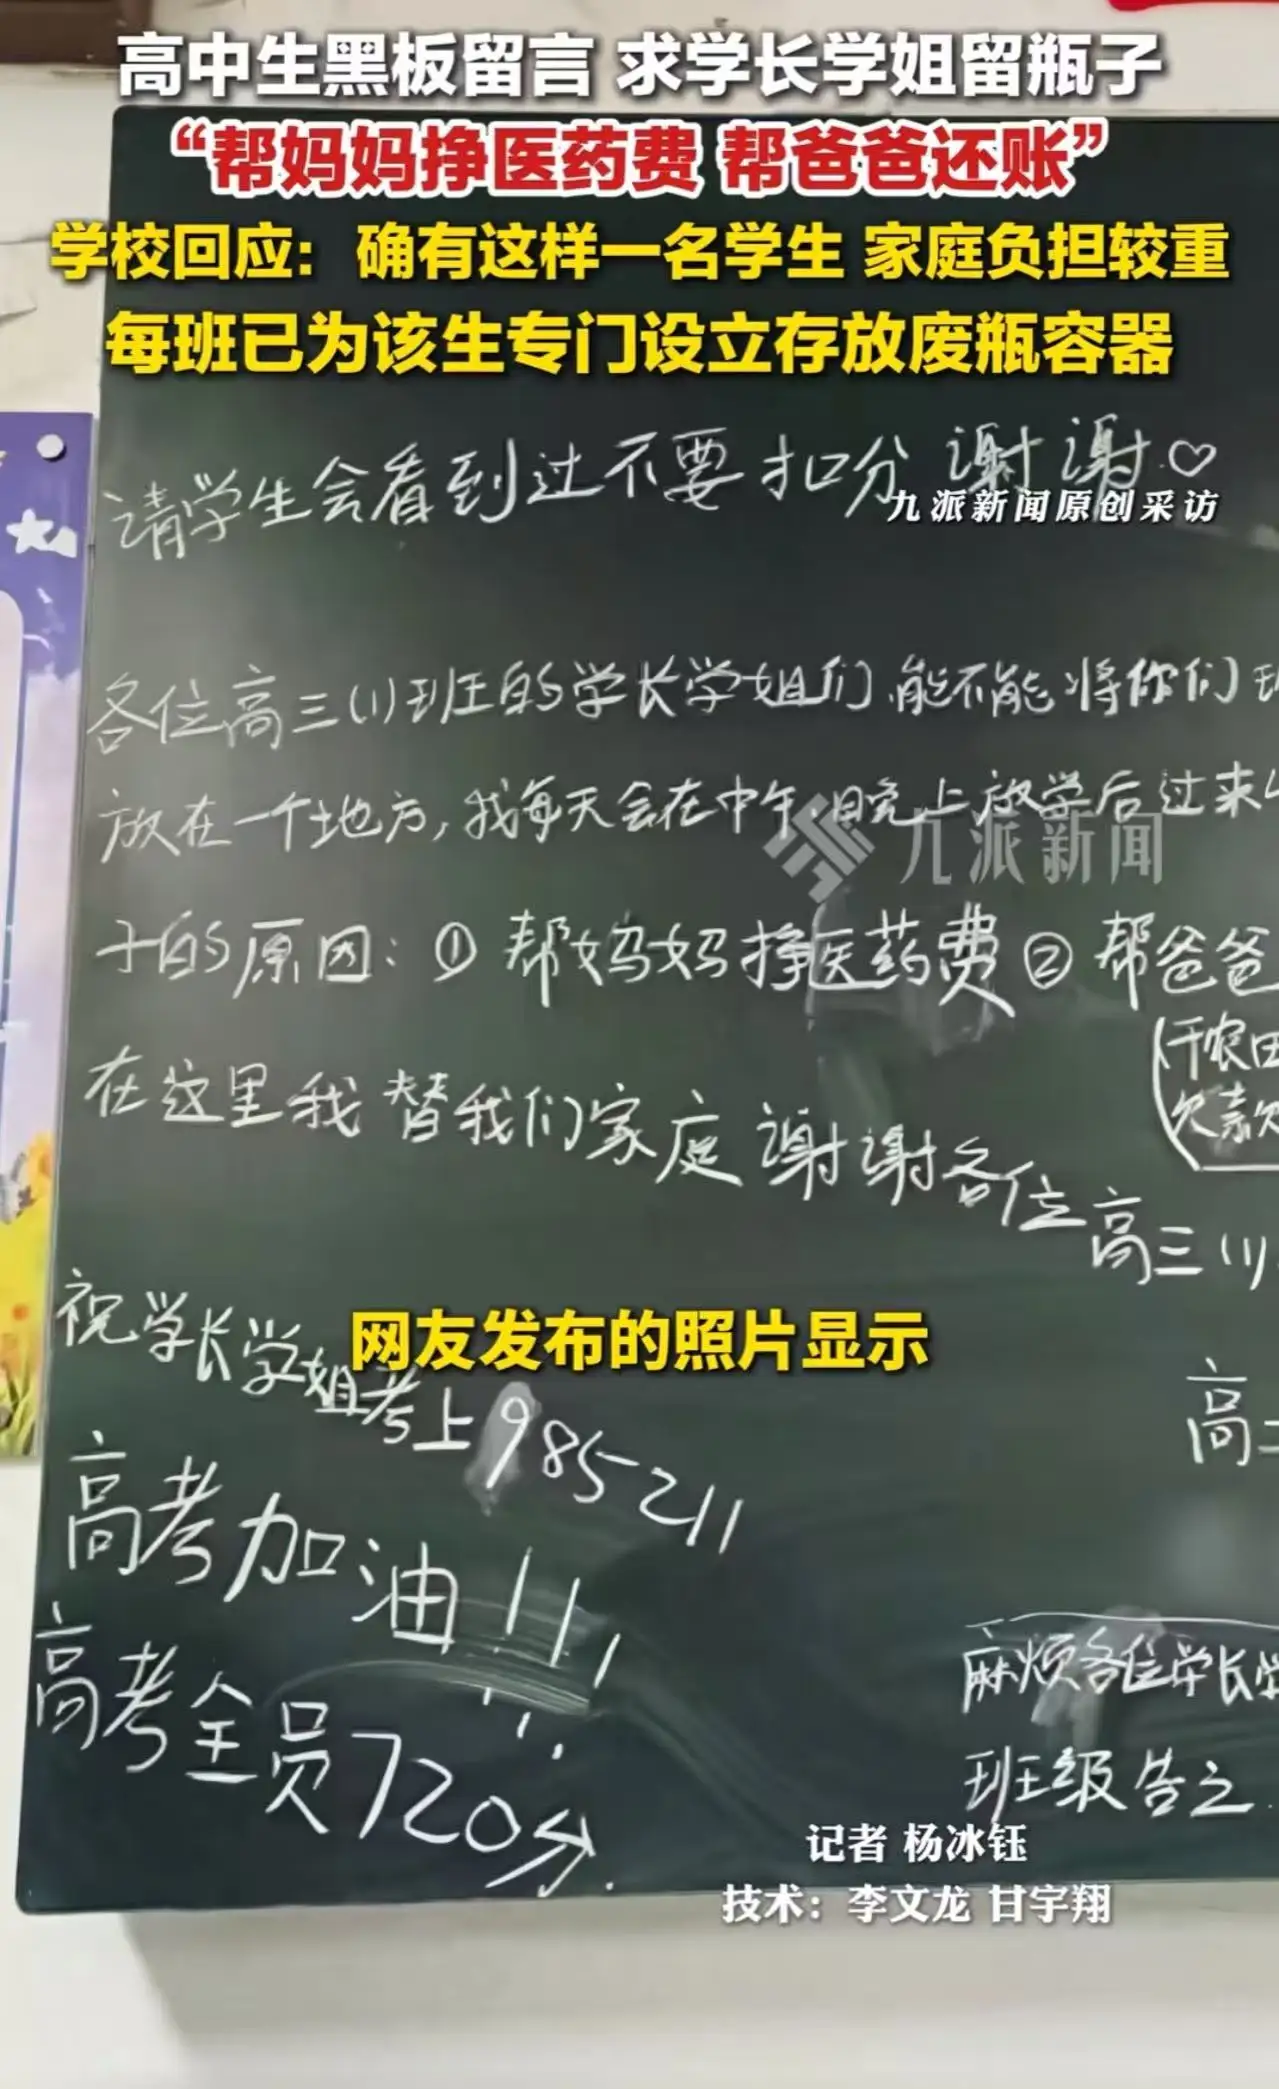 高中生黑板留言 求学长学姐留瓶子
“帮妈妈挣医药费 帮爸爸还账”
学校回应：确有这样一名学生 家庭负担较重
每班已为该生专门设立存放废瓶容器
请学生会看到过不要扣分 谢谢♡
九派新闻原创采访
各位高三(1)班的学长学姐们,能不能将你们
放在一个地方,我每天会在中午,晚上放学后过来
九派新闻
子的原因:①帮妈妈挣医药费②帮爸爸
(干农田
欠款
在这里我替我们家庭谢谢各位高三(1)
祝学长学姐考上985 211
网友发布的照片显示
高考加油!!!
高考全员720分.
麻烦各位学长
班级告之.
记者 杨冰钰
技术：李文龙 甘宇翔